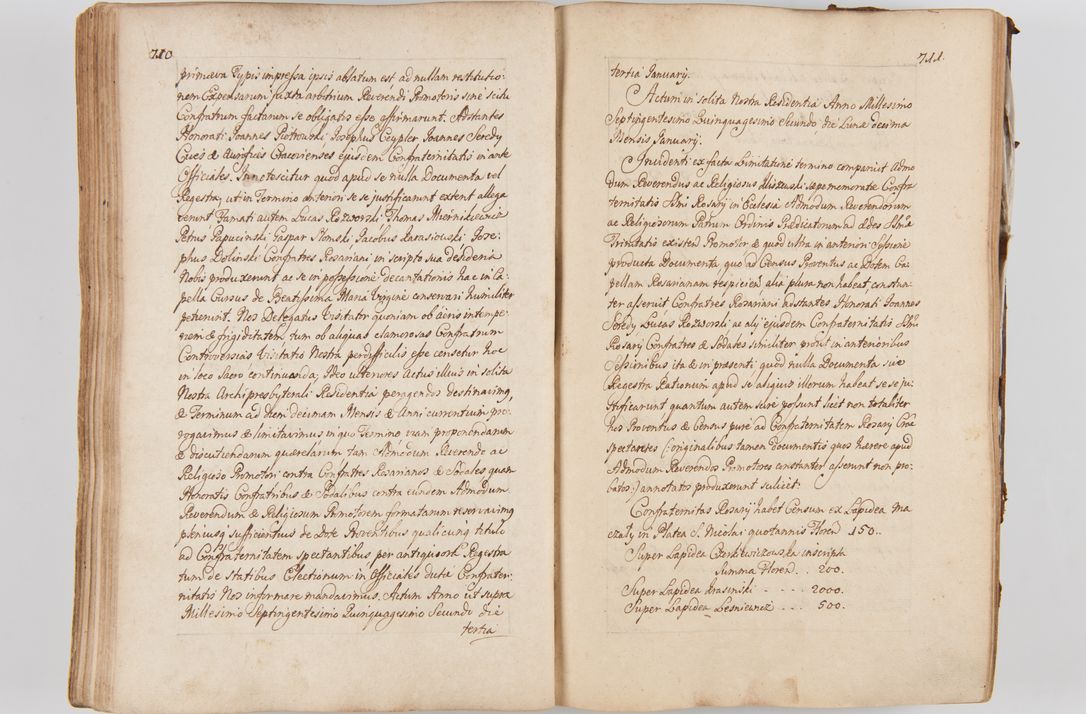 710
primæva Typis impressa ipsis ablatum est ad nullam restitutio:
nem Expensarum juxta arbitrium Reverendi Promotoris sine scitu
Confratrum factarum se obligatos esse affirmarunt. Adstantes
Honorati Joannes Piotrowski Josephus Ceypler Joannes Seredy
Cives & Aurifices Cracovienses ejusdem Confraternitatis in ante
Officiales. Innotescitur quod apud se nulla Documenta vel
Regestra, ut in Termino anteriori se se justificarunt extent allega
verunt. Famati autem Lucas Rozworski Thomas
Petrus Papucinski Gaspar Słomski Jacobus Jose:
phus Doliński Confratres Rosariani in scripto sua desideria
Nobis produxerunt ac se in possessione decantationis hac in Ca:
pella Cursus de Beatissima Maria Virgine conservari humiliter
petierunt. Nos Delegatus Visitator quoniam ob aeris intempe:
riem & frigiditatem tum ob aliquas clamorosas Confratrum
Controversias Visitatio Nostra perdifficilis esse censetur hoc
in loco Sacro continuanda; Ideo ulteriores Actus illius in solita
Nostra Archipresbyterali Residentia peragendos destinavimus,
& Terminum ad diem decimam Mensis & Anni currentium pro:
rogavimus & limitavimus in quo Termino viam proponendarum
& discutiendarum quærelarum tam Admodum Reverendo ac
Religioso Promotori contra Confratres Rosarianos & Sodales quam
Honoratis Confratribus & Sodalibus contra eundem Admodum
Reverendum & Religiosum Promotorem formatarum reservavimus
pleniusq sufficientius de Dote Proventibus qualicunq titulo
ad Confraternitatem spectantibus per antiquiora Regestra
tum de Statibus Electionum in Officiales dictæ Confrater:
nitatis Nos informare mandavimus. Actum Anno ut supra
Millesimo Septingentesimo Quinquagesimo Secundo die
tertia
711.
tertia Januarij.
Actum in solita Nostra Residentia Anno Millesimo
Septingentesimo Quinquagesimo Secundo die Lunæ decima
Mensis Januarij.
Incidenti ex facta Limitatione termino comparuit Admo
dum Reverendus ac Religiosus sæpememoratæ Confra
ternitatis SSmi Rosarij in Ecclesia Admodum Reverendorum
ac Religiosorum Patrum Ordinis Prædicatorum ad Ædes SSmæ
Trinitatis existen Promotor & quod ultra in anteriori Sessione
producta Documenta quo ad Census Proventus ac Dotem Ca
pellam Rosarianam respicien alia plura non habeat, constan:
ter asseruit Confratres Rosariani adstantes Honorati Joannes
Seredy Lucas Rozworski ac alij ejusdem Confraternitatis SSmi
Rosarij Confratres & Sodales similiter prout in anterioribus
Sessionibus ita & in præsenti quod nulla Documenta sive
Regestra Rationum apud se aliquis illorum habeat se se ju:
stificarunt quantum autem scire possunt licet non totaliter
hos Proventus & Census pure ad Confraternitatem Rosarij Cræ
spectantes (: originalibus tamen Documentis quos hærere apud
Admodum Reverendos Promotores constanter asserunt non pro:
batos :) annotatos produxerunt scilicet.
Confraternitas Rosarij habet Censum ex Lapidea Ma
czaly in Platea S. Nicolai quotannis Floren 150.
Super Lapidea Czerkiewiczowska inscripta
Summa Floren. . 200.
Super Lapidea Krasinski - - - - 2000.
Super Lapidea Lesniewicz - - - 500.